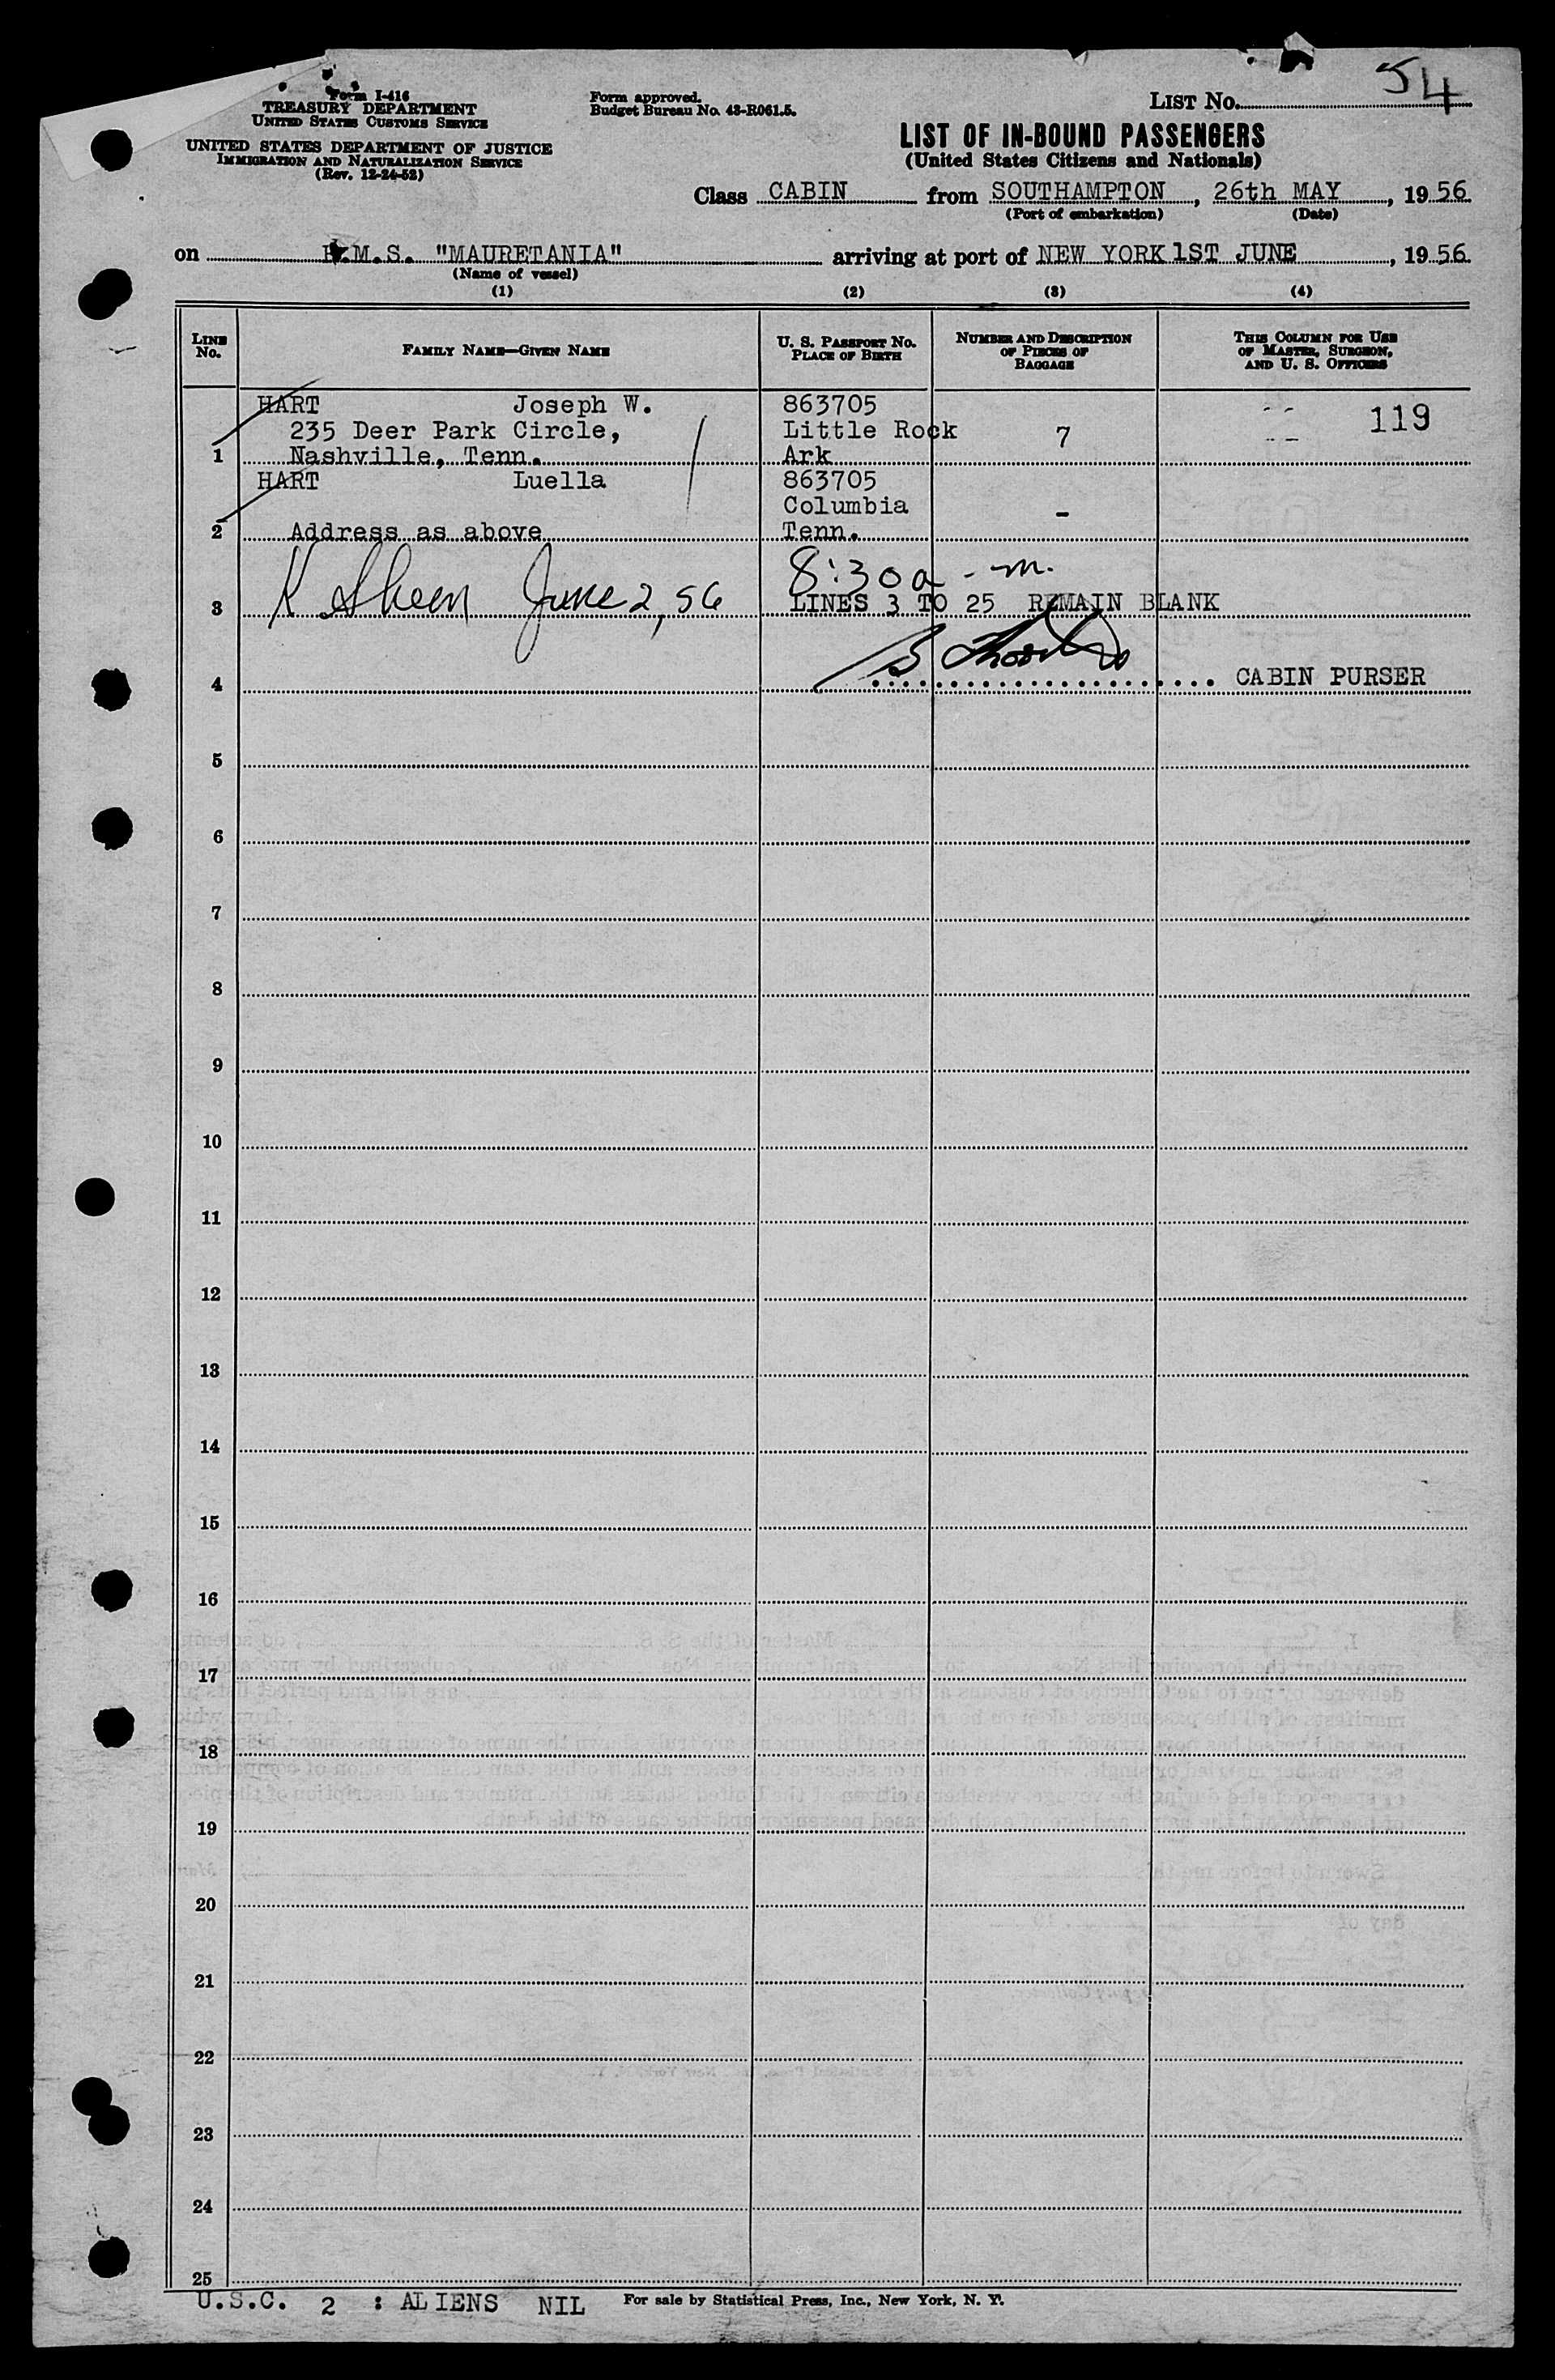 54
Form I-416
TREASURY DEPARTMENT
UNITED STATES CUSTOMS SERVICE
UNITED STATES DEPARTMENT OF JUSTICE
IMMIGRATION AND NATURALIZATION SERVICE
(Rev. 12-24-52)
Form approved.
Budget Bureau No. 43-R061.5.
LIST No.
LIST OF IN-BOUND PASSENGERS
(United States Citizens and Nationals)
Class CABIN from SOUTHAMPTON, 26th MAY, 19 56
(Port of embarkation) (Date)
on R.M.S. "MAURETANIA" arriving at port of NEW YORK 1ST JUNE, 19 56
(Name of vessel)
(1) (2) (3) (4)
LINE No. FAMILY NAME—GIVEN NAME U. S. PASSPORT No. PLACE OF BIRTH NUMBER AND DESCRIPTION OF PIECES OF BAGGAGE THIS COLUMN FOR USE OF MASTER, SURGEON, AND U. S. OFFICERS
HART Joseph W. 863705 119
235 Deer Park Circle, Little Rock 7
1 Nashville, Tenn. Ark
HART Luella 863705
Columbia -
2 Address as above Tenn.
K Skeen June 2, 56 8:30 a.m.
3 LINES 3 TO 25 REMAIN BLANK
4 CABIN PURSER
5
6
7
8
9
10
11
12
13
14
15
16
17
18
19
20
21
22
23
24
25
U.S.C. 2 : ALIENS NIL For sale by Statistical Press, Inc., New York, N. Y.